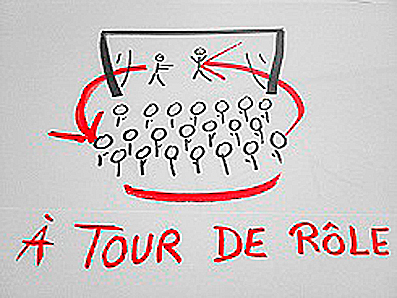 À TOUR DE RÔLE